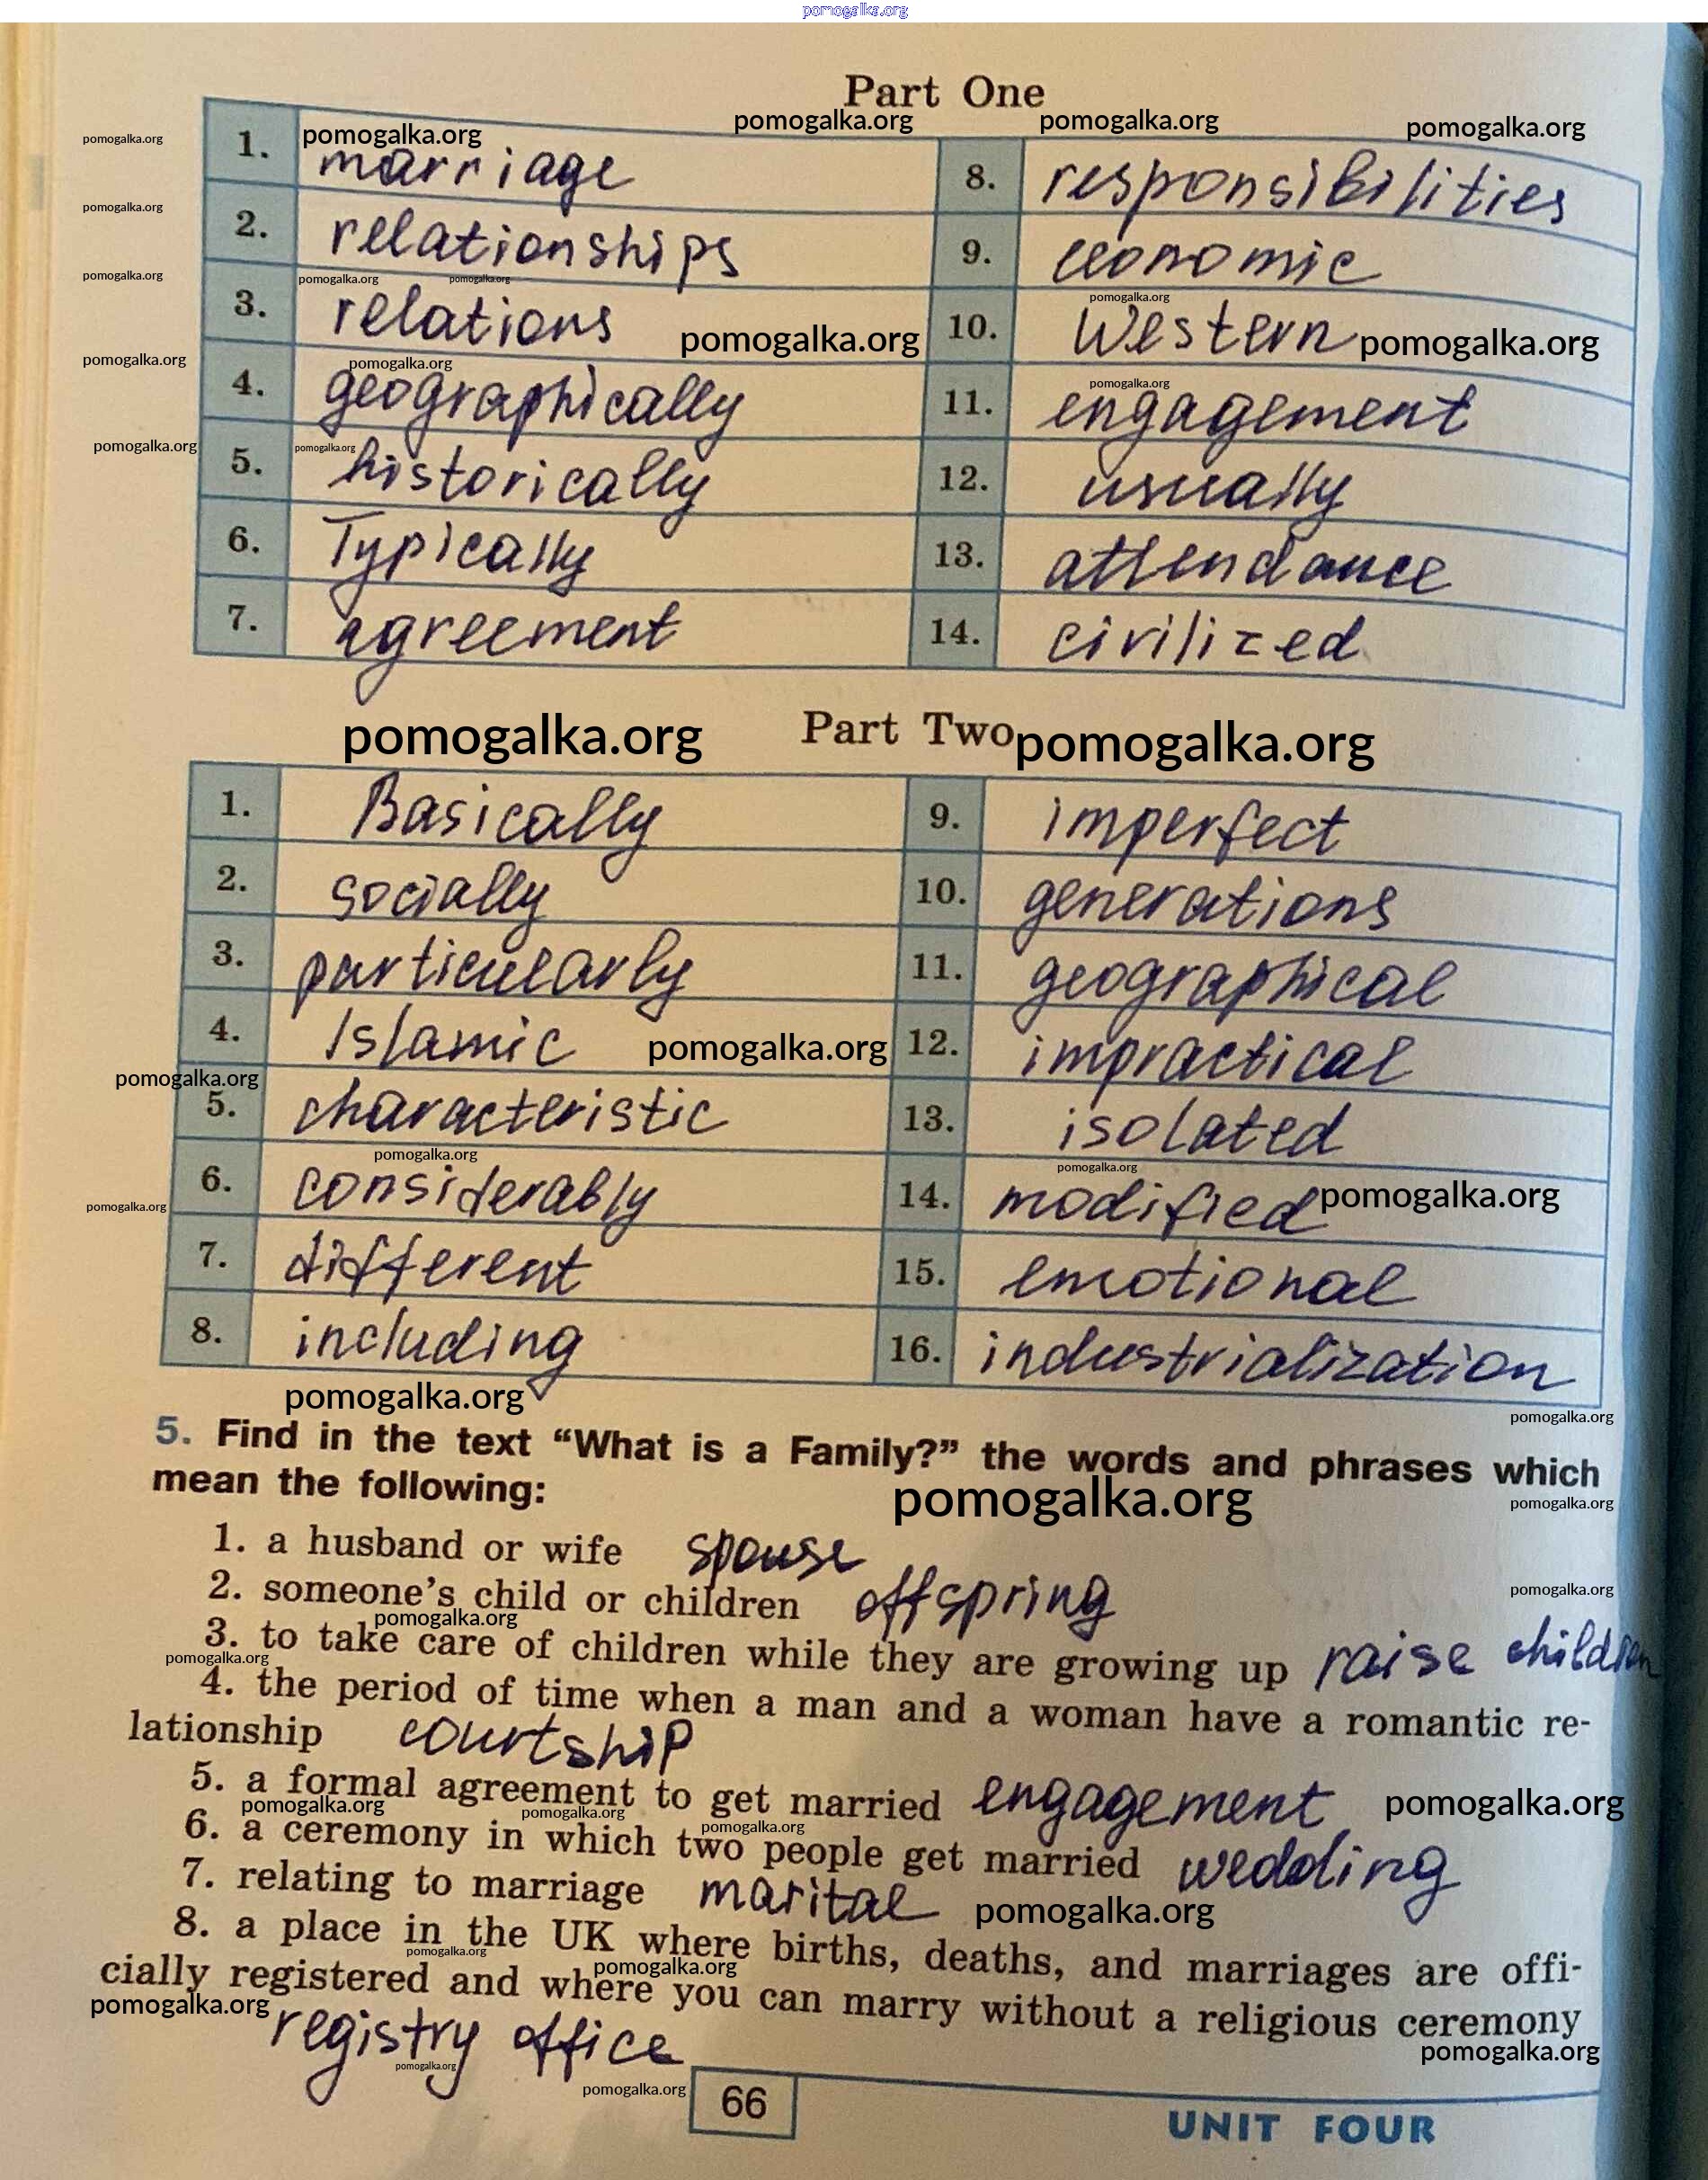 pomogalka.org
Part One
pomogalka.org pomogalka.org pomogalka.org pomogalka.org pomogalka.org
1. marriage 8. responsibilities
pomogalka.org
2. relationships 9. economic
pomogalka.org pomogalka.org pomogalka.org pomogalka.org
3. relations pomogalka.org 10. Western pomogalka.org
pomogalka.org pomogalka.org pomogalka.org
4. geographically 11. engagement
pomogalka.org pomogalka.org
5. historically 12. usually
6. Typically 13. attendance
7. agreement 14. civilized
Part Two
pomogalka.org pomogalka.org
1. Basically 9. imperfect
2. socially 10. generations
3. particularly 11. geographical
4. Islamic pomogalka.org 12. impractical
pomogalka.org
5. characteristic 13. isolated
pomogalka.org pomogalka.org
6. considerably 14. modified pomogalka.org
pomogalka.org
7. different 15. emotional
8. including 16. industrialization
pomogalka.org
pomogalka.org
5. Find in the text “What is a Family?” the words and phrases which
mean the following:
pomogalka.org pomogalka.org
1. a husband or wife spouse
2. someone’s child or children offspring
pomogalka.org pomogalka.org
3. to take care of children while they are growing up raise children
pomogalka.org
4. the period of time when a man and a woman have a romantic re-
lationship courtship
5. a formal agreement to get married engagement
pomogalka.org pomogalka.org pomogalka.org pomogalka.org
6. a ceremony in which two people get married wedding
7. relating to marriage marital
pomogalka.org
8. a place in the UK where births, deaths, and marriages are offi-
pomogalka.org pomogalka.org
cially registered and where you can marry without a religious ceremony
pomogalka.org
registry office
pomogalka.org
pomogalka.org
pomogalka.org
66
UNIT FOUR